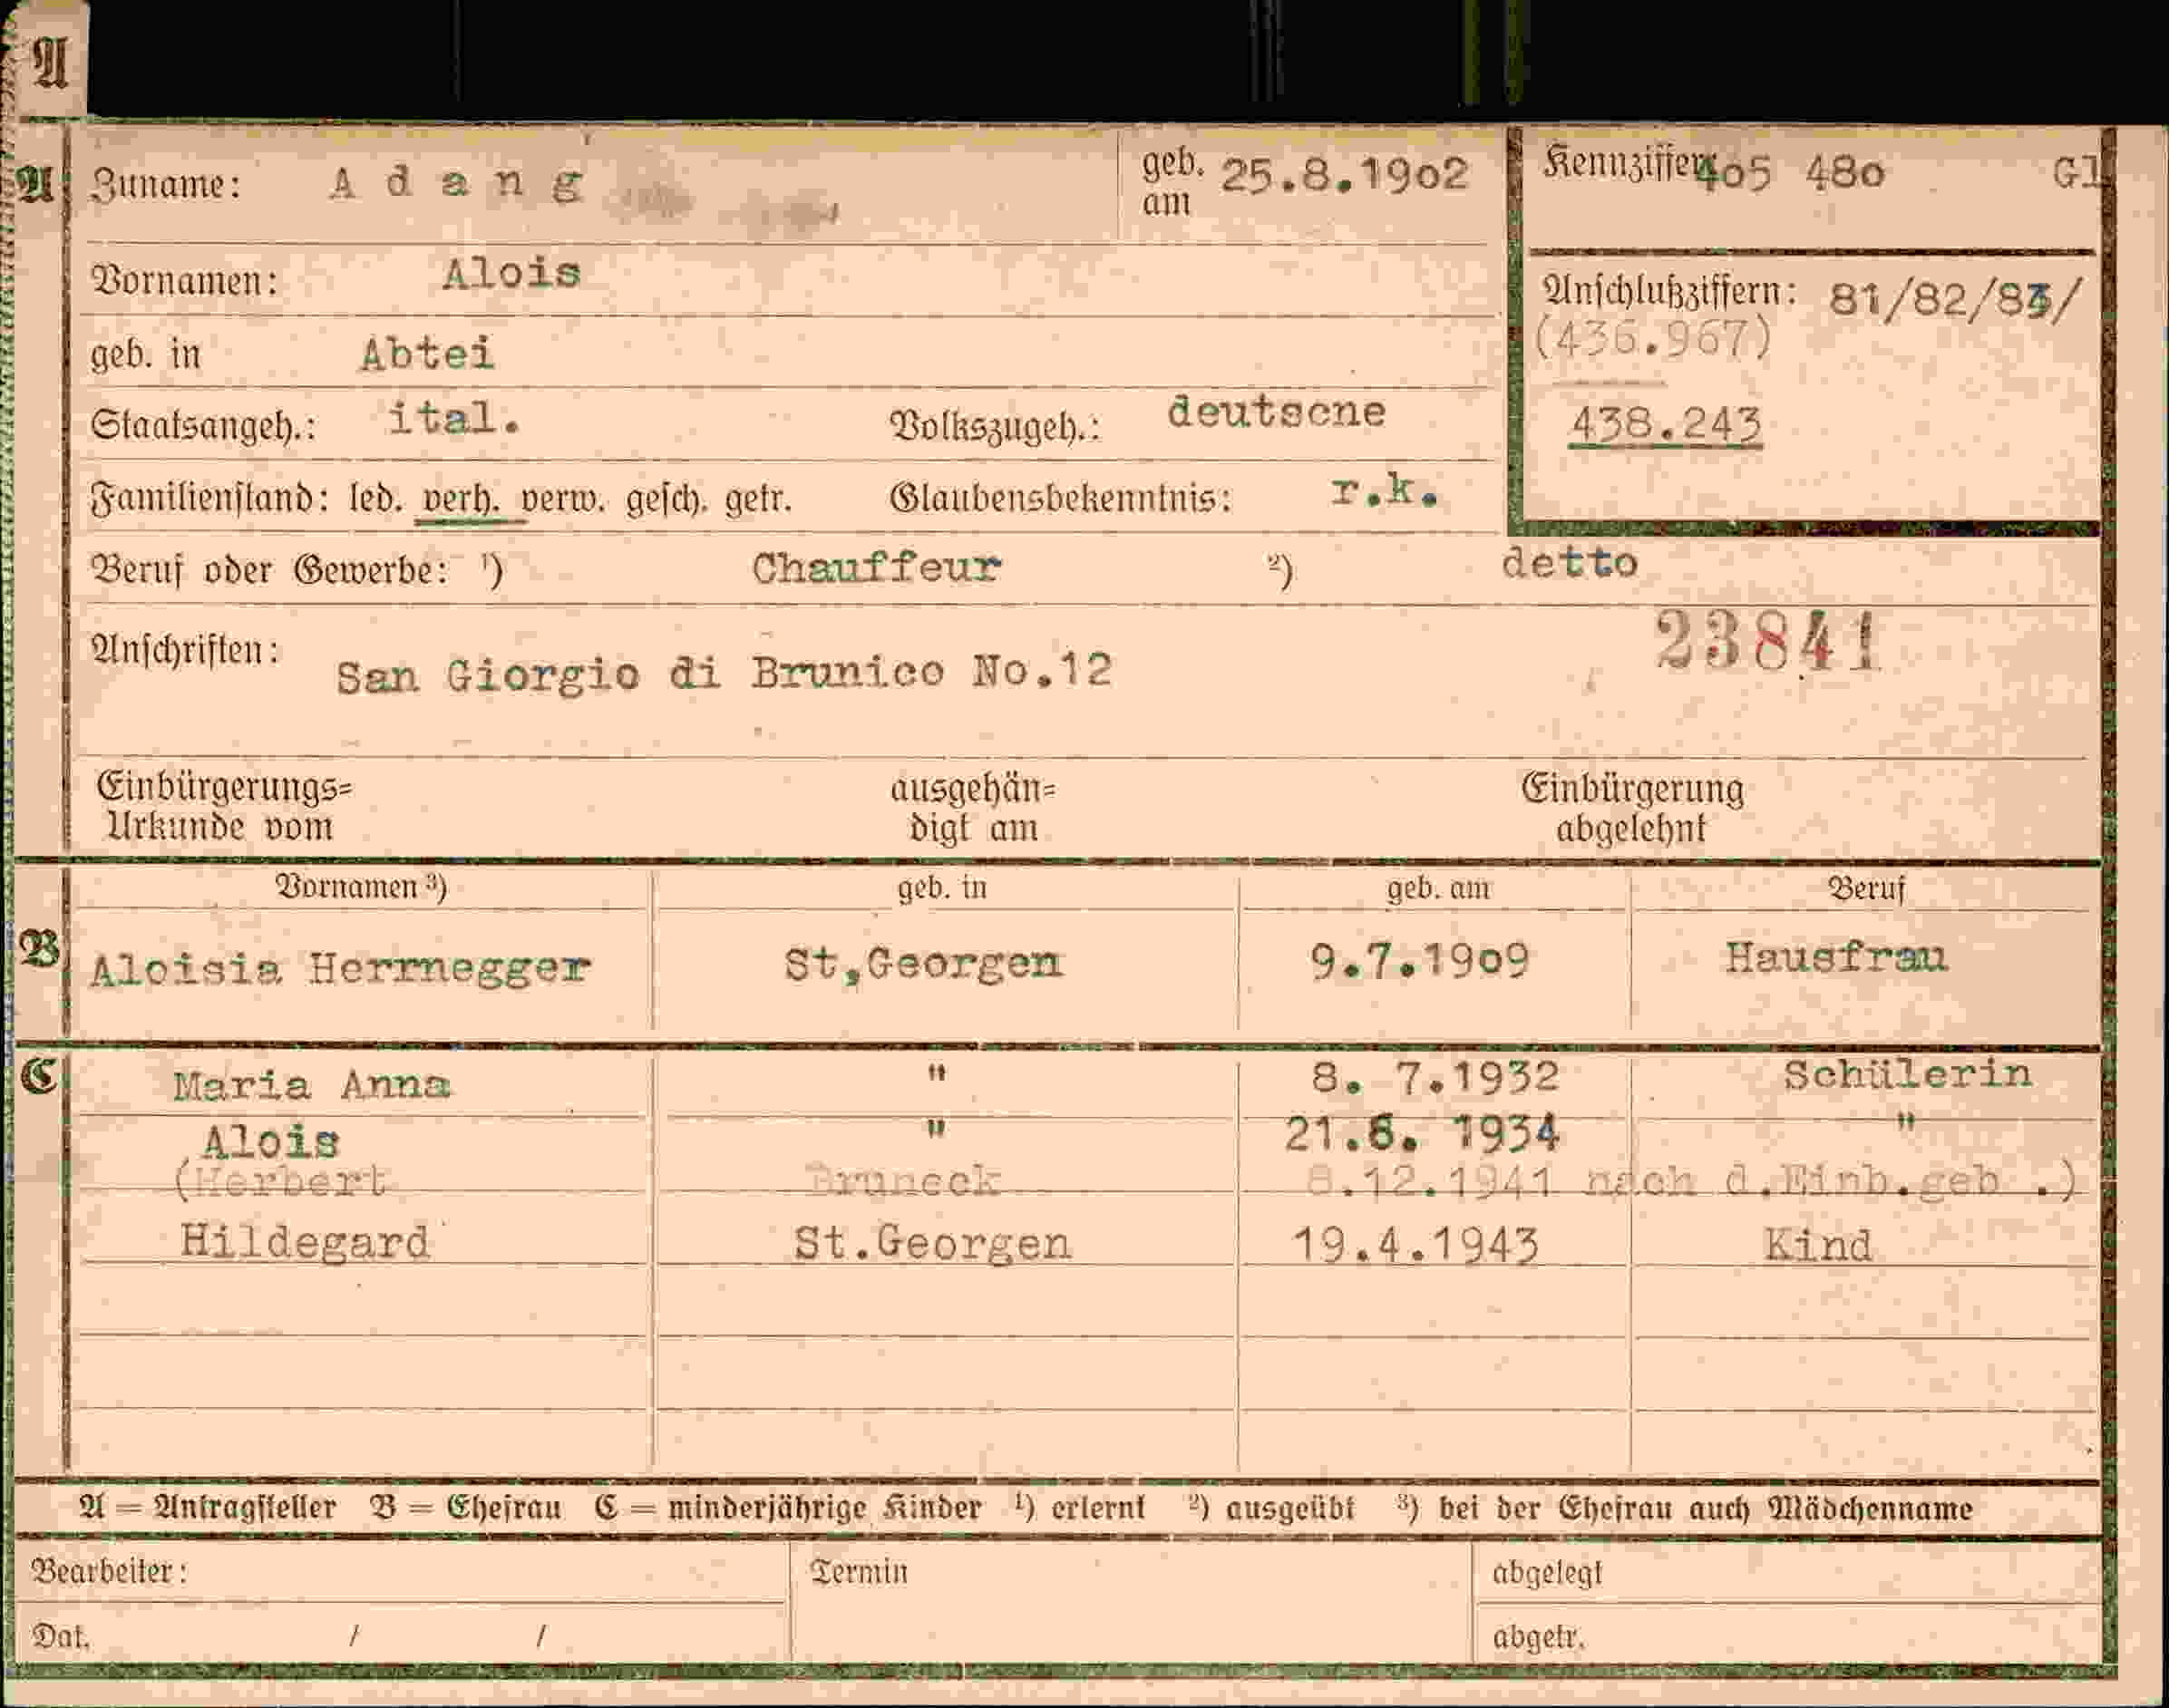 A
A Zuname: A d a n g geb. am 25.8.1902 Kennziffer: 405 480 Gl
Vornamen: Alois
Anschlußziffern: 81/82/83/
(436.967)
geb. in Abtei
Staatsangeh.: ital. Volkszugeh.: deutsche
438.243
Familienstand: led. verh. verw. gesch. getr. Glaubensbekenntnis: r.k.
Beruf oder Gewerbe: ¹) Chauffeur ²) detto
23841
Anschriften: San Giorgio di Brunico No.12
Einbürgerungs=
Urkunde vom
ausgehän=
digt am
Einbürgerung
abgelehnt
Vornamen ³) geb. in geb. am Beruf
B Aloisia Herrnegger St,Georgen 9.7.1909 Hausfrau
C Maria Anna " 8. 7.1932 Schülerin
Alois " 21.6. 1934 "
(Herbert Bruneck 8.12.1941 nach d.Einb.geb .)
Hildegard St.Georgen 19.4.1943 Kind
A = Antragsteller B = Ehefrau C = minderjährige Kinder ¹) erlernt ²) ausgeübt ³) bei der Ehefrau auch Mädchenname
Bearbeiter: Termin abgelegt
Dat. / / abgetr.